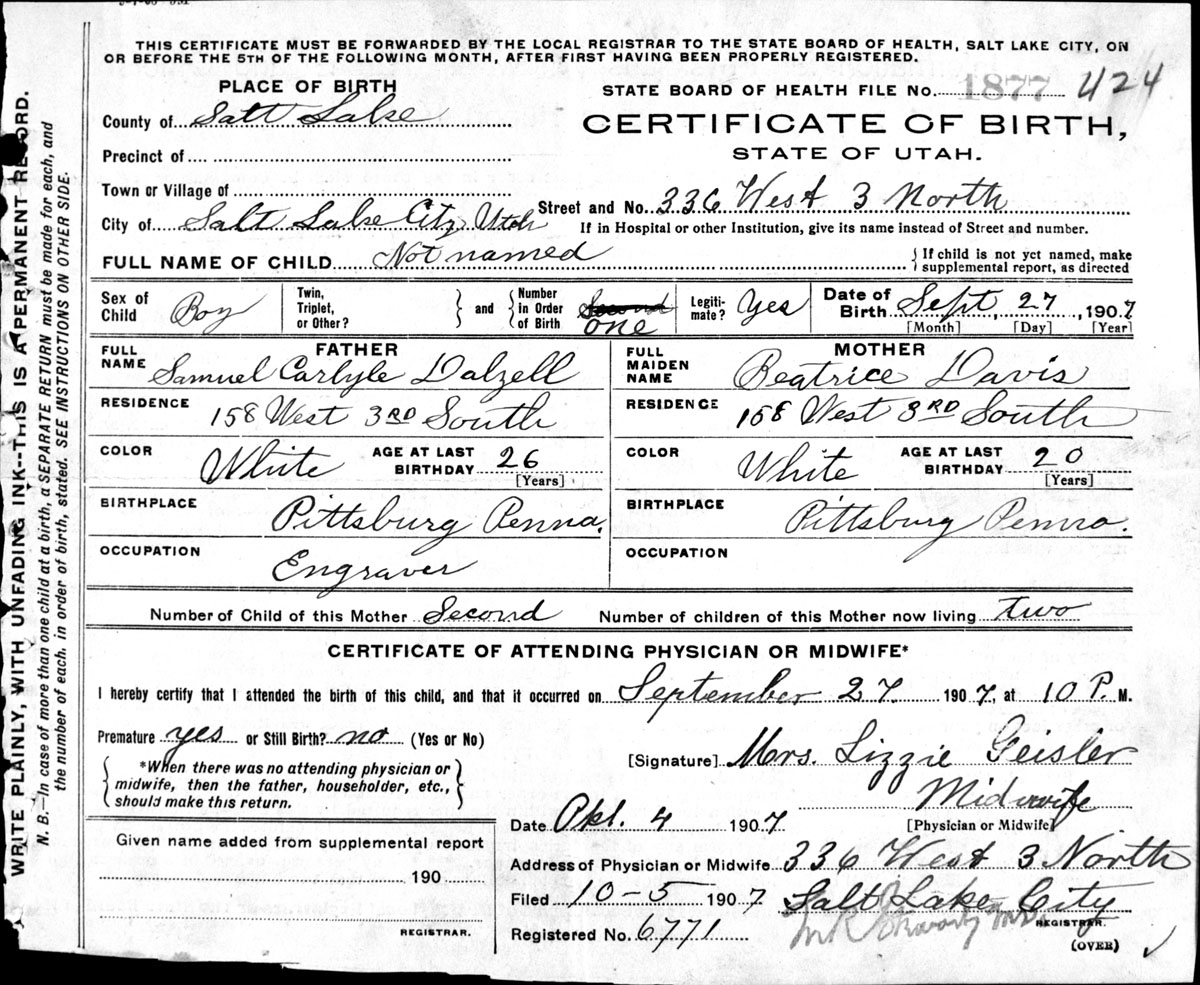 THIS CERTIFICATE MUST BE FORWARDED BY THE LOCAL REGISTRAR TO THE STATE BOARD OF HEALTH, SALT LAKE CITY, ON
OR BEFORE THE 5TH OF THE FOLLOWING MONTH, AFTER FIRST HAVING BEEN PROPERLY REGISTERED.
PLACE OF BIRTH
STATE BOARD OF HEALTH FILE No. 1877 424
County of Salt Lake
CERTIFICATE OF BIRTH,
Precinct of
STATE OF UTAH.
Town or Village of
Street and No. 336 West 3 North
City of Salt Lake City Utah
If in Hospital or other Institution, give its name instead of Street and number.
FULL NAME OF CHILD Not named
If child is not yet named, make
supplemental report, as directed
Sex of Child Boy
Twin, Triplet, or Other?
and
Number in Order of Birth Second one
Legiti-mate? Yes
Date of Birth Sept, 27, 1907
[Month] [Day] [Year]
FATHER
FULL NAME Samuel Carlyle Dalzell
RESIDENCE 158 West 3RD South
COLOR White
AGE AT LAST BIRTHDAY 26
[Years]
BIRTHPLACE Pittsburg Penna.
OCCUPATION Engraver
MOTHER
FULL MAIDEN NAME Beatrice Davis
RESIDENCE 158 West 3RD South
COLOR White
AGE AT LAST BIRTHDAY 20
[Years]
BIRTHPLACE Pittsburg Penna.
OCCUPATION
Number of Child of this Mother Second
Number of children of this Mother now living two
CERTIFICATE OF ATTENDING PHYSICIAN OR MIDWIFE*
I hereby certify that I attended the birth of this child, and that it occurred on September 27 1907, at 10 P. M.
Premature yes or Still Birth? no (Yes or No)
*When there was no attending physician or
midwife, then the father, householder, etc.,
should make this return.
[Signature] Mrs. Lizzie Geisler
Midwife
[Physician or Midwife]
Date Okt. 4 1907
Address of Physician or Midwife 336 West 3 North
Salt Lake City
Filed 10-5 1907
Registered No. 6771
REGISTRAR.
(OVER)
Given name added from supplemental report
190
REGISTRAR.
WRITE PLAINLY, WITH UNFADING INK--THIS IS A PERMANENT RECORD.
N. B.—In case of more than one child at a birth, a SEPARATE RETURN must be made for each, and
the number of each, in order of birth, stated. SEE INSTRUCTIONS ON OTHER SIDE.